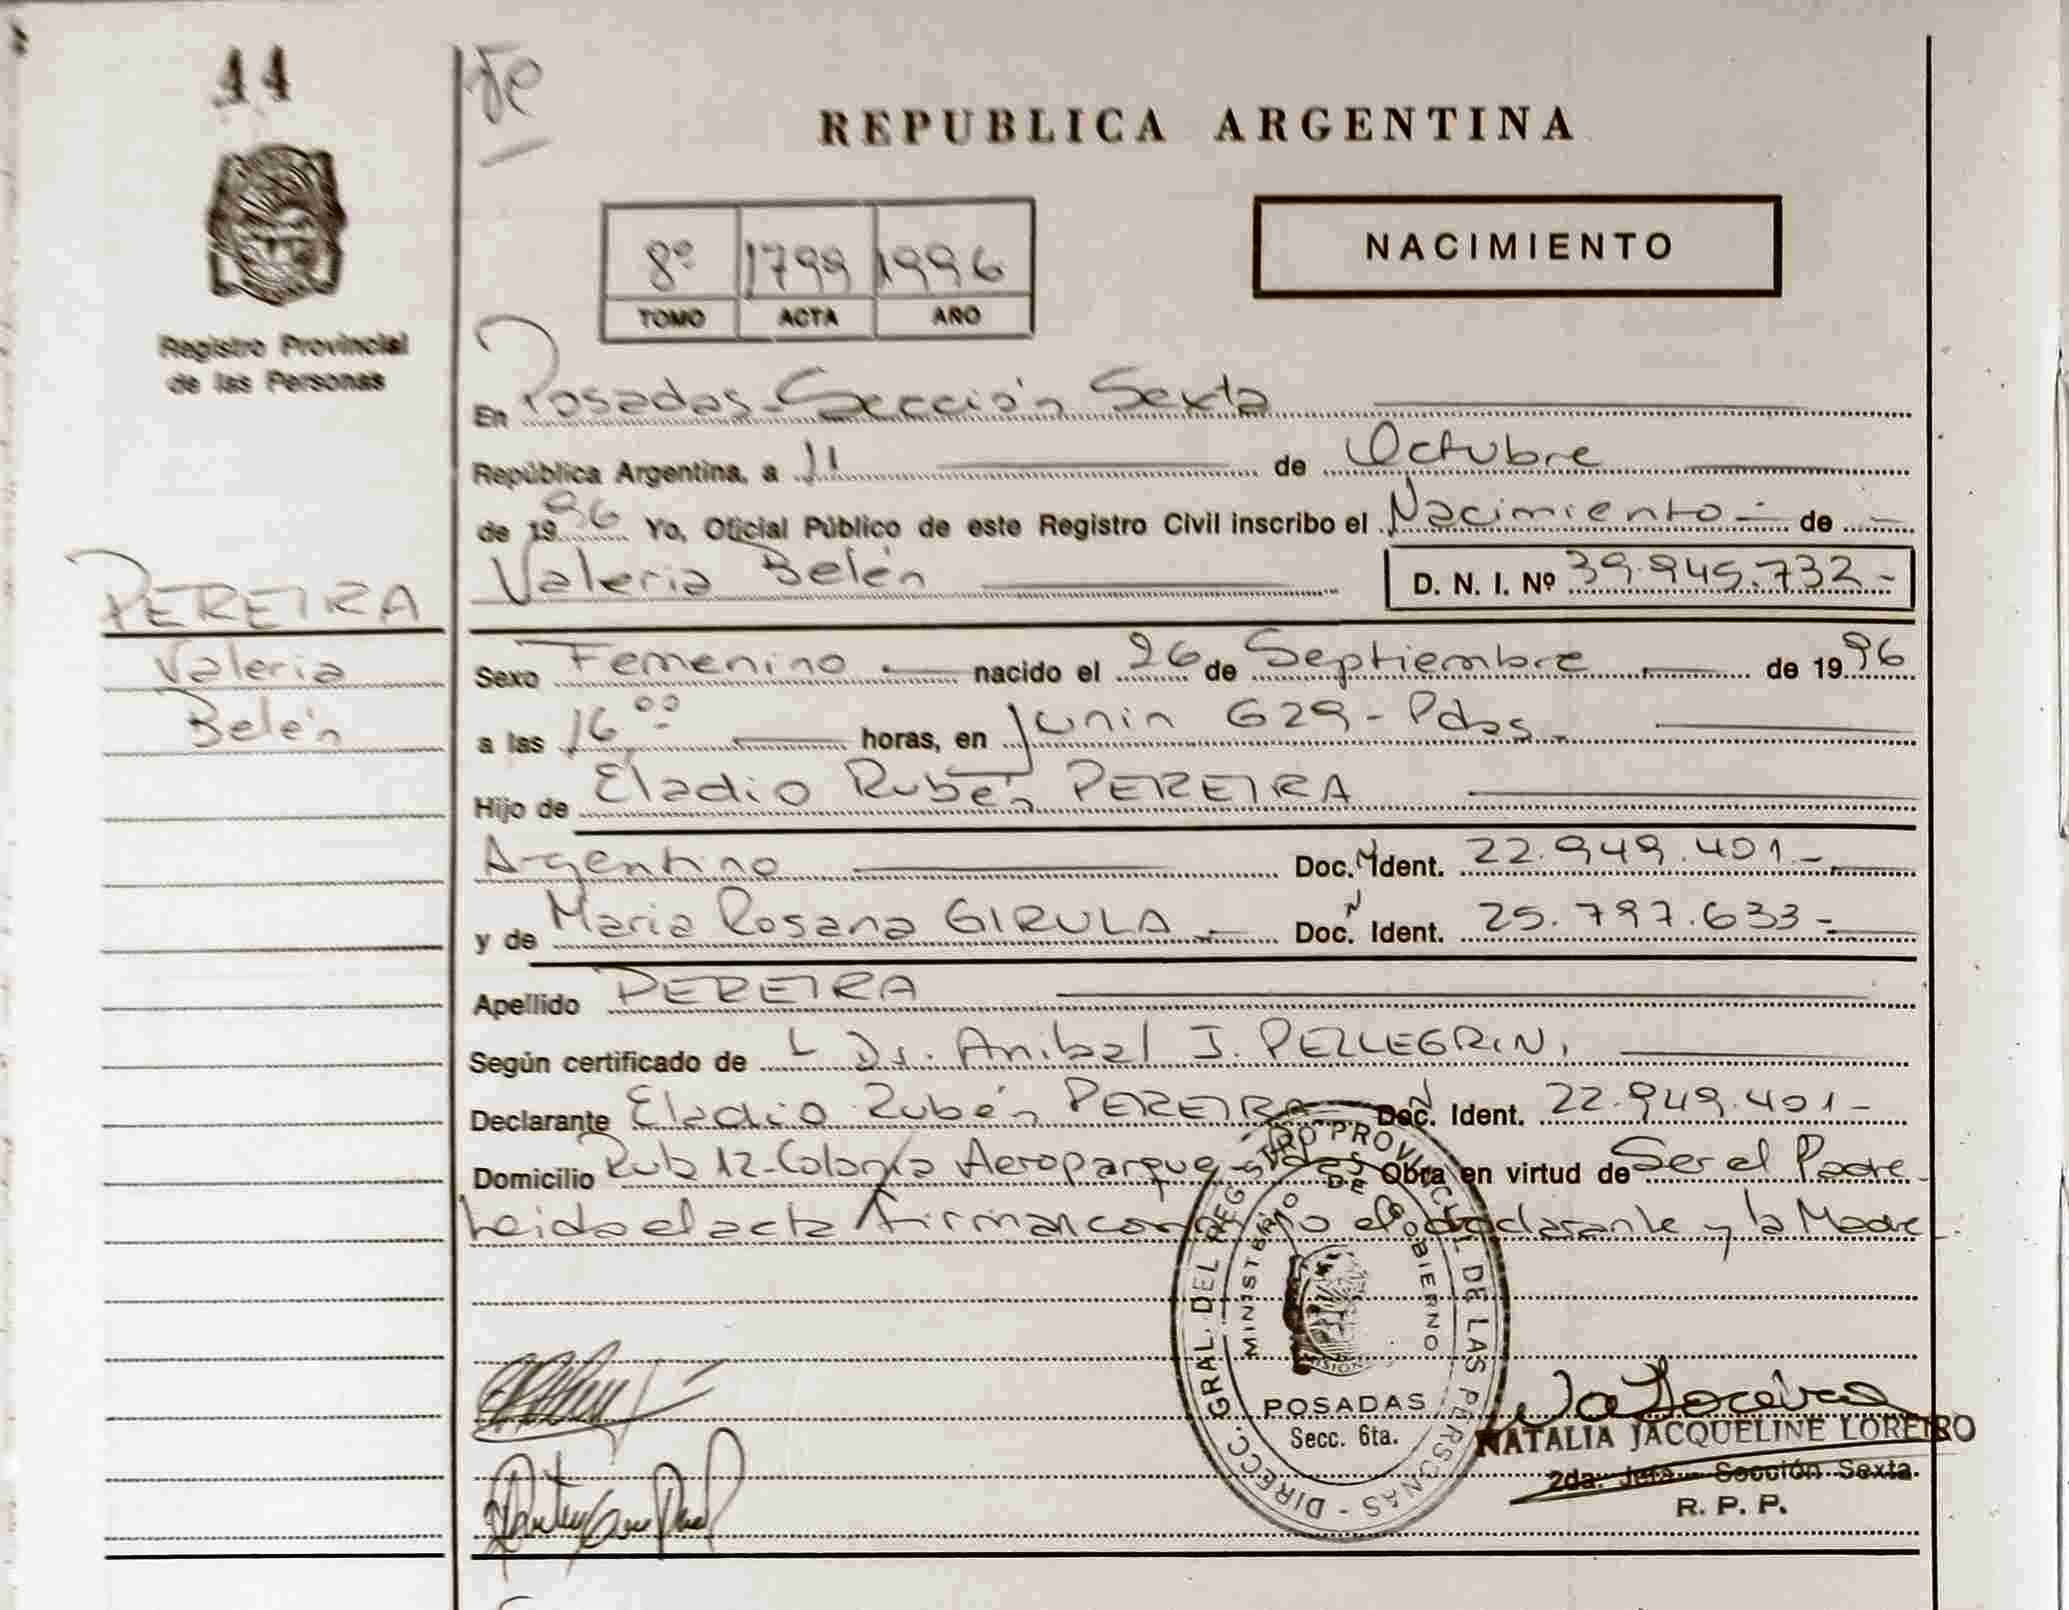 44
REPUBLICA ARGENTINA
8º 1799 1996
TOMO ACTA AÑO
NACIMIENTO
Registro Provincial
de las Personas
En Posadas - Sección Sexta
República Argentina, a 11 de Octubre
de 1996 Yo, Oficial Público de este Registro Civil inscribo el Nacimiento - de -
Valeria Belén D. N. I. Nº 39.945.732.-
PEREIRA
Valeria
Belén
Sexo Femenino nacido el 26 de Septiembre de 1996
a las 16,00 horas, en Junin 629 - Pdas.
Hijo de Eladio Rubén PEREIRA
Argentino Doc. N Ident. 22.949.401-
y de Maria Rosana GIRULA Doc. N Ident. 25.797.633-
Apellido PEREIRA
Según certificado de Dr. Anibal J. PELLEGRINI
Declarante Eladio Rubén PEREIRA Doc. N Ident. 22.949.401-
Domicilio Ruta 12 - Colonia Aeroparque Obra en virtud de Ser el Padre
Leida el acta firman conmigo el declarante y la Madre
DIRECC. GRAL. DEL REGISTRO PROVINCIAL DE LAS PERSONAS -
MINISTERIO DE GOBIERNO
MISIONES
POSADAS
Secc. 6ta.
NATALIA JACQUELINE LOREIRO
2da. Jefa - Sección Sexta
R. P. P.